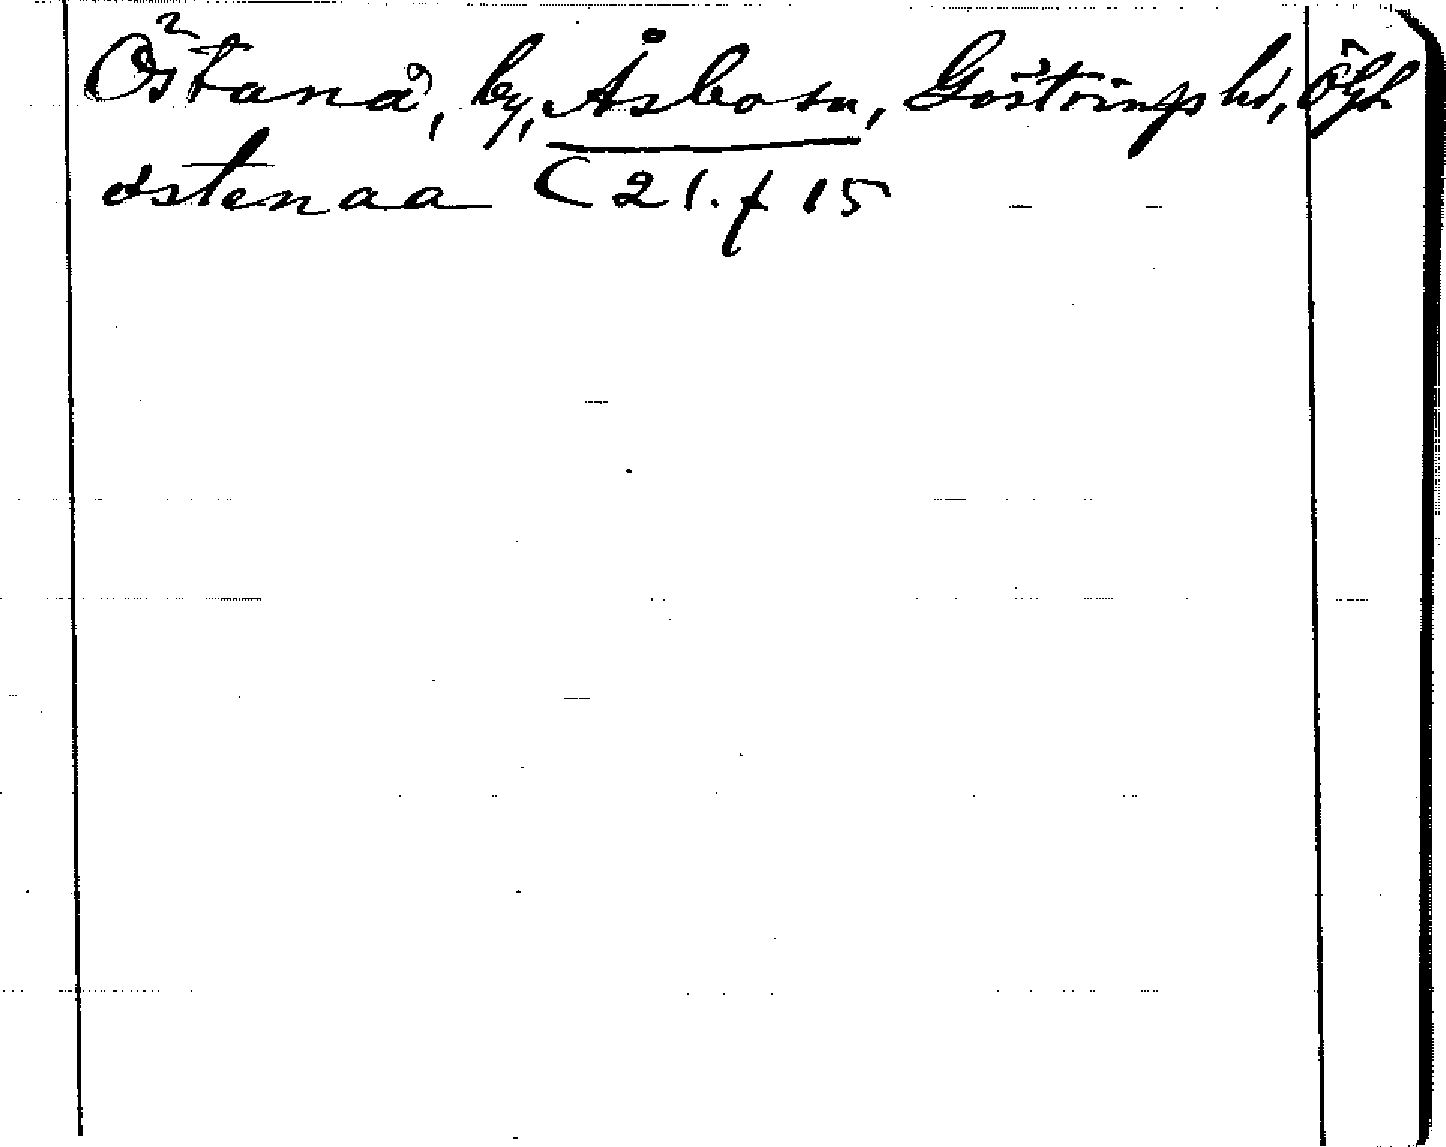 Östanå, by, Åsbo sn, Göstrings hd, Ögl.
østenaa C 21. f 15